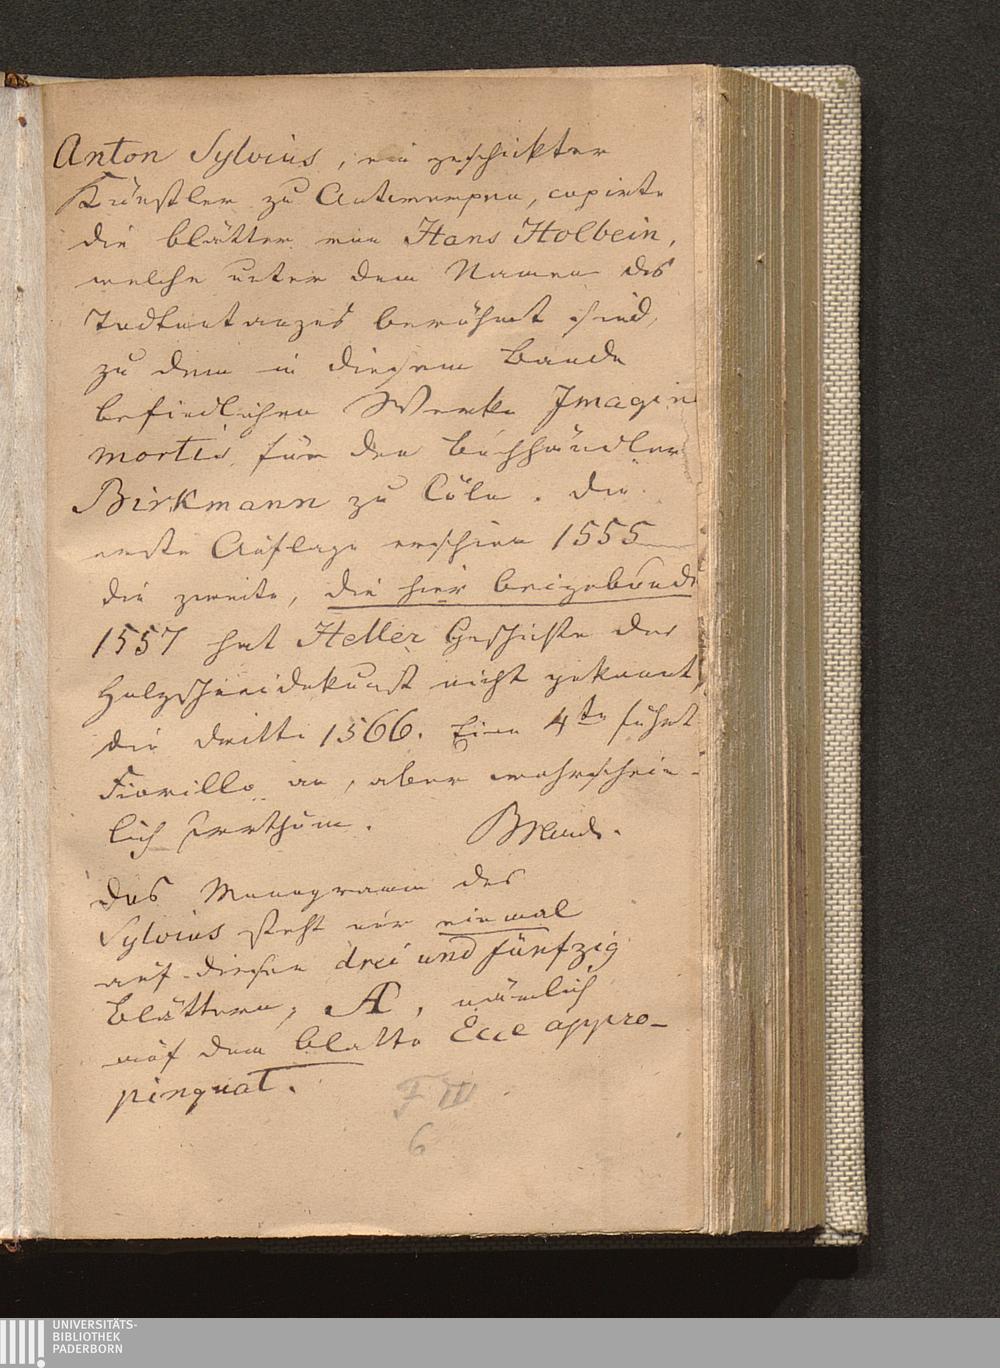 Anton Sylvius, ein geschickter
Künstler zu Antwerpen, copirte
die Blätter von Hans Holbein,
welche unter dem Namen des
Todtentanzes berühmt sind,
zu dem in diesem Bande
befindlichen Werke Imagin
mortis, für den Buchhändler
Birkmann zu Cöln. Die
erste Auflage erschien 1555
die zweite, die hier beigebunde
1557 hat Heller Geschichte der
Holzschneidekunst nicht gekannt,
die dritte 1566. Eine 4te führt
Fiorillo an, aber wahrschein-
lich Irrthum.
Das Monogramm des
Sylvius steht nur einmal
auf diesen drei und fünfzig
Blättern, A, nämlich
auf dem Blatte Ecce appro-
pinquat.
F III
6
UNIVERSITÄTS-
BIBLIOTHEK
PADERBORN